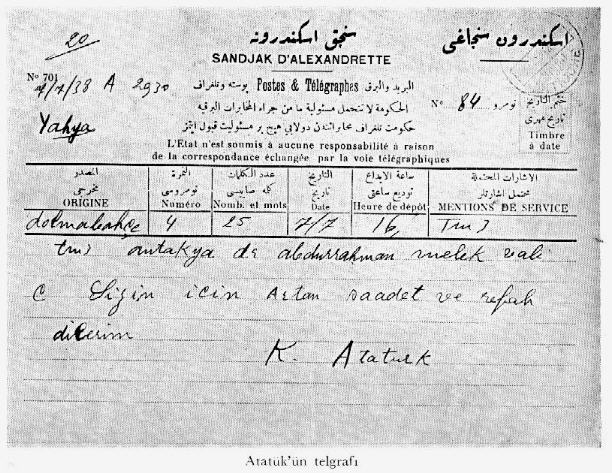 20
سنجق اسكندرونه
اسكندرون سنجاغی
SANDJAK D'ALEXANDRETTE
Nº 701
7/7/38 A 2930
البريد والبرق Postes & Télégraphes پوسته وتلغراف
Nº 84 نومرو
Yahya
الحكومة لا تتحمل مسئولية ما من جراء المخابرات البرقية
حكومت تلغراف مخابراتندن دولايی هيچ بر مسئوليت قبول ايتمز
ختم التاريخ
تاريخ مهری
Timbre
à date
L'État n'est soumis à aucune responsabilité à raison
de la correspondance échangée par la voie télégraphiques
المصدر النمرة عدد الكلمات التاريخ ساعة الايداع الاشارات المحتملة
مخرجی نومروسی كله صاييسی تاريخ توديع ساعتی محتمل اشارتلر
ORIGINE Numéro Nomb. et mots Date Heure de dépôt MENTIONS DE SERVICE
dolmabahçe 4 25 7/7 16,
antakya de abdurrahman melek vali
C Sizin icin artan saadet ve refah
dilerim
K. Ataturk
Atatük'ün telgrafı